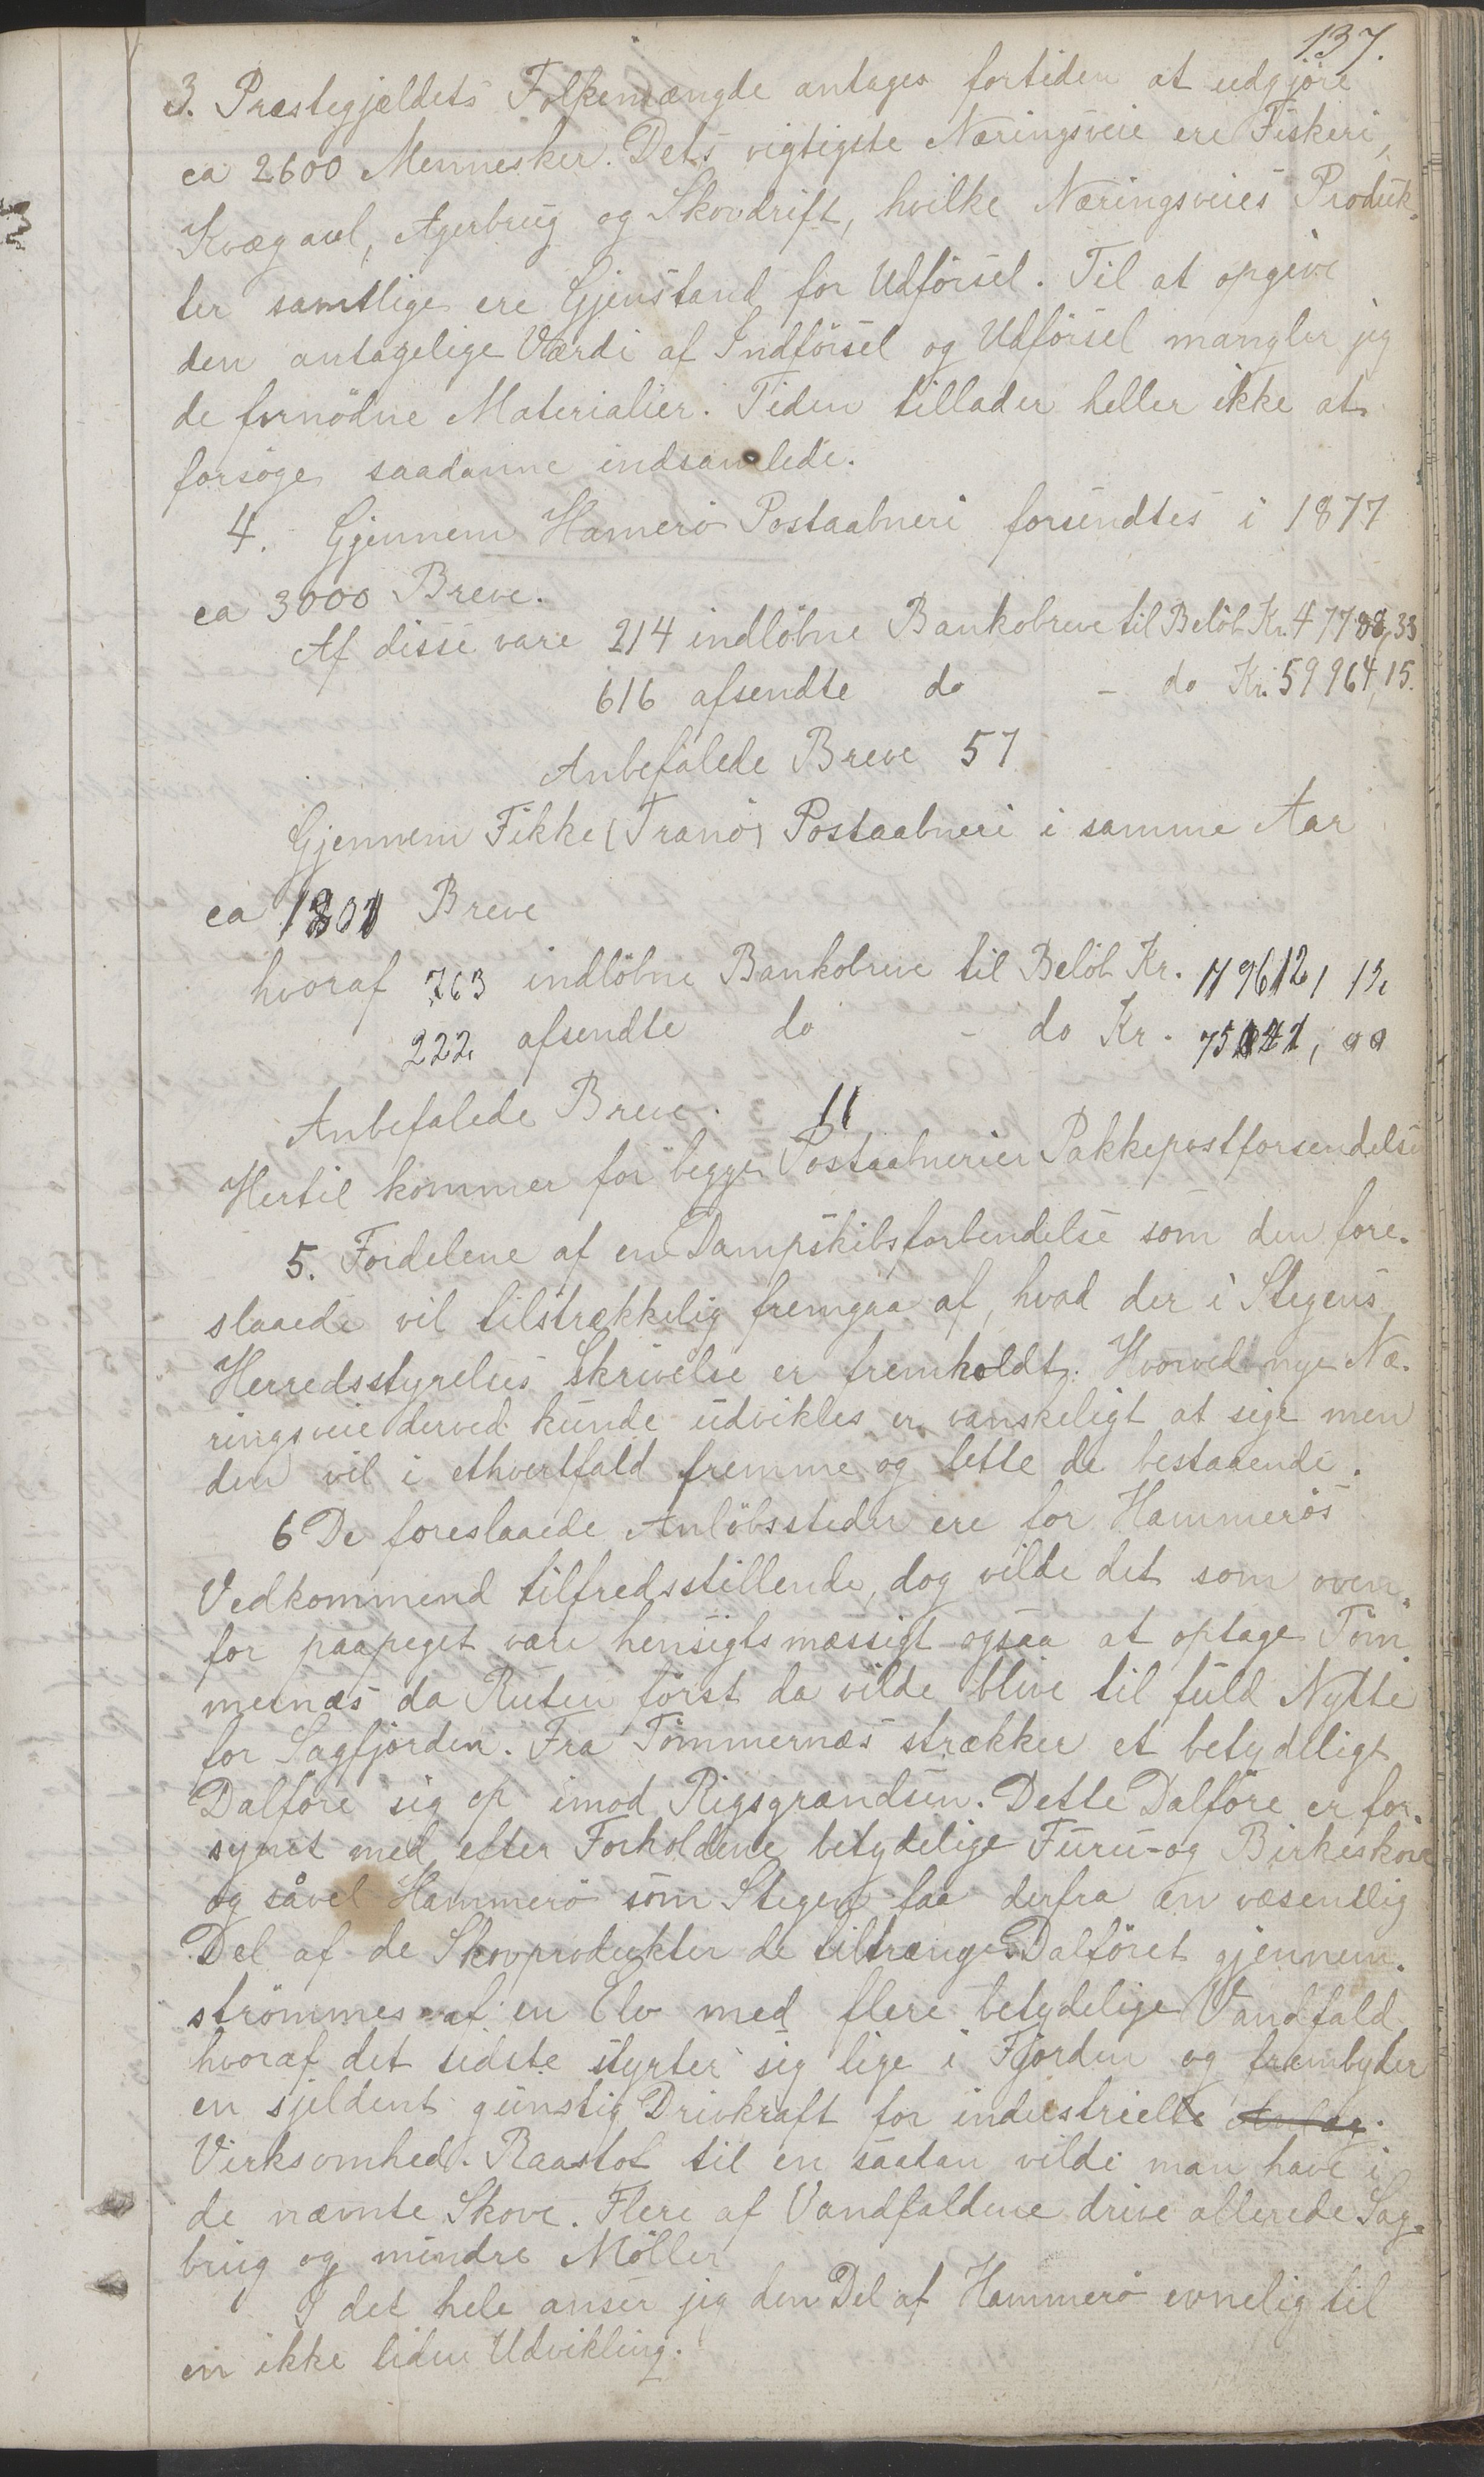 137.
3. Præstegjældets Folkemængde antages fortiden at udgjöre
ca 2600 Mennesker. Dets vigtigste Næringsveie ere Fiskeri,
Kvægavl, Agerbrug og Skovdrift, hvilke Næringsveies Produk-
ter samtlige ere Gjenstand for Udförsel. Til at opgive
den antagelige Værdi af Indförsel og Udförsel mangler jeg
de fornödne Materialier. Tiden tillader heller ikke at
forsöge saadanne indsamlede.
4. Gjennem Hamerö Postaabneri forsendtes i 1877
ca 3000 Breve.
Af disse vare 214 indlöbne Bankobreve til Belöb Kr. 47788,33
616 afsendte do - do Kr. 59964,15.
Anbefalede Breve 57
Gjennem Fikke (Tranö) Postaabneri i samme Aar
ca 1801 Breve
hvoraf 763 indlöbne Bankobreve til Belöb Kr.
222 afsendte do - do Kr.
Anbefalede Breve. 11
Hertil kommer for begge Postaabnerier Pakkepostforsendelse
5. Fordelene af en Dampskibsforbindelse som den fore-
slaaede vil tilstrækkelig fremgaa af, hvad der i Stegens
Herredsstyrelses Skrivelse er fremholdt. Hvorvidt nye Næ-
ringsveie derved kunde udvikles er vanskeligt at sige men
den vil i ethvertfald fremme og lette de bestaaende.
6 De foreslaaede Anlöbssteder ere for Hammerös
Vedkommend tilfredsstillende, dog vilde det som oven-
for paapeget være hensigtsmæssigt ogsaa at optage Töm-
mernæs da Ruten först da vilde blive til fuld Nytte
for Sagfjorden. Fra Tömmernæs strækker et betydeligt
Dalföre sig op imod Rigsgrændsen. Dette Dalföre er for-
synet med efter Forholdene betydelige Furu- og Birkeskove
og såvel Hammerö som Stegen faa derfra en væsentlig
Del af de Skovprodukter de tiltrænge. Dalföret gjennem-
strömmes af en Elv med flere betydelige Vandfald
hvoraf det sidste styrter sig lige i Fjorden og frembyder
en sjeldent gunstig Drivkraft for industrielle Anlæg.
Virksomhed. Raastof til en saadan vilde man have i
de nævnte Skove. Flere af Vandfaldene drive allerede Sag-
brug og mindre Möller
I det hele anser jeg den Del af Hammerö evnelig til
en ikke liden Udvikling.